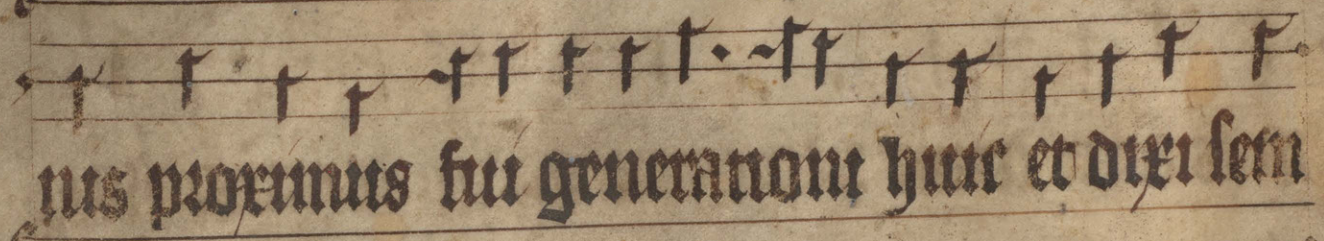 nis proximus fui generationi huic et dixi sem